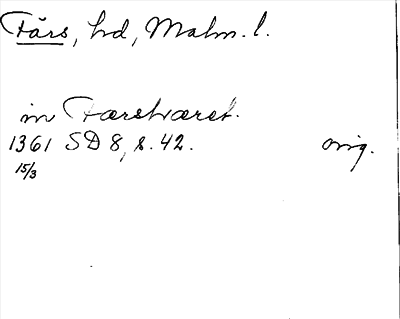 Färs, hd, Malm. l.
in Færshæret.
1361 SD 8, s. 42. orig.
15/3